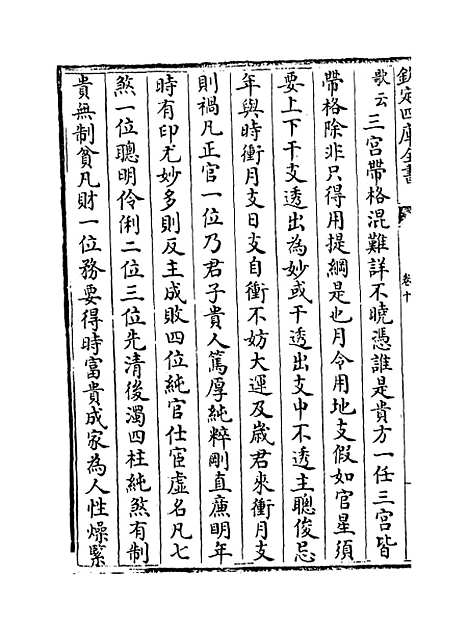 欽定四庫全書
卷十
歌云三宮帶格混難詳不曉憑誰是貴方一任三宮皆
帶格除非只得用提綱是也月令用地支假如官星須
要上下干支透出為妙或干透出支中不透主聰俊忌
年與時衝月支日支自衝不妨大運及歲君來衝月支
則禍凡正官一位乃君子貴人篤厚純粹剛直廉明年
時有印尤妙多則反主成敗四位純官仕宦虛名凡七
煞一位聰明伶俐二位三位先清後濁四柱純煞有制
貴無制貧凡財一位務要得時富貴成家為人性燥緊